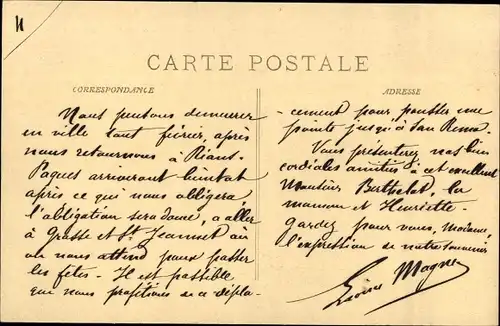 CARTE POSTALE
CORRESPONDANCE
Nous pensons demeurer
en ville tout février, après
nous retournons à Rians.
Paques arriveront bientot
après ce qui nous obligera,
l'obligation sera douce, a aller
à Grasse et St Jeannet où
on nous attend pour passer
les fêtes. Il est possible
que nous profitions de ce dépla-
ADRESSE
-cement pour pousser une
pointe jusqu'à San Remo.
Vous présenterez nos bien
cordiales amitiés à cet excellent
Monsieur Berthelot, la
maman et Henriette.
Gardez pour vous, madame,
l'expression de notre souvenir
Magne